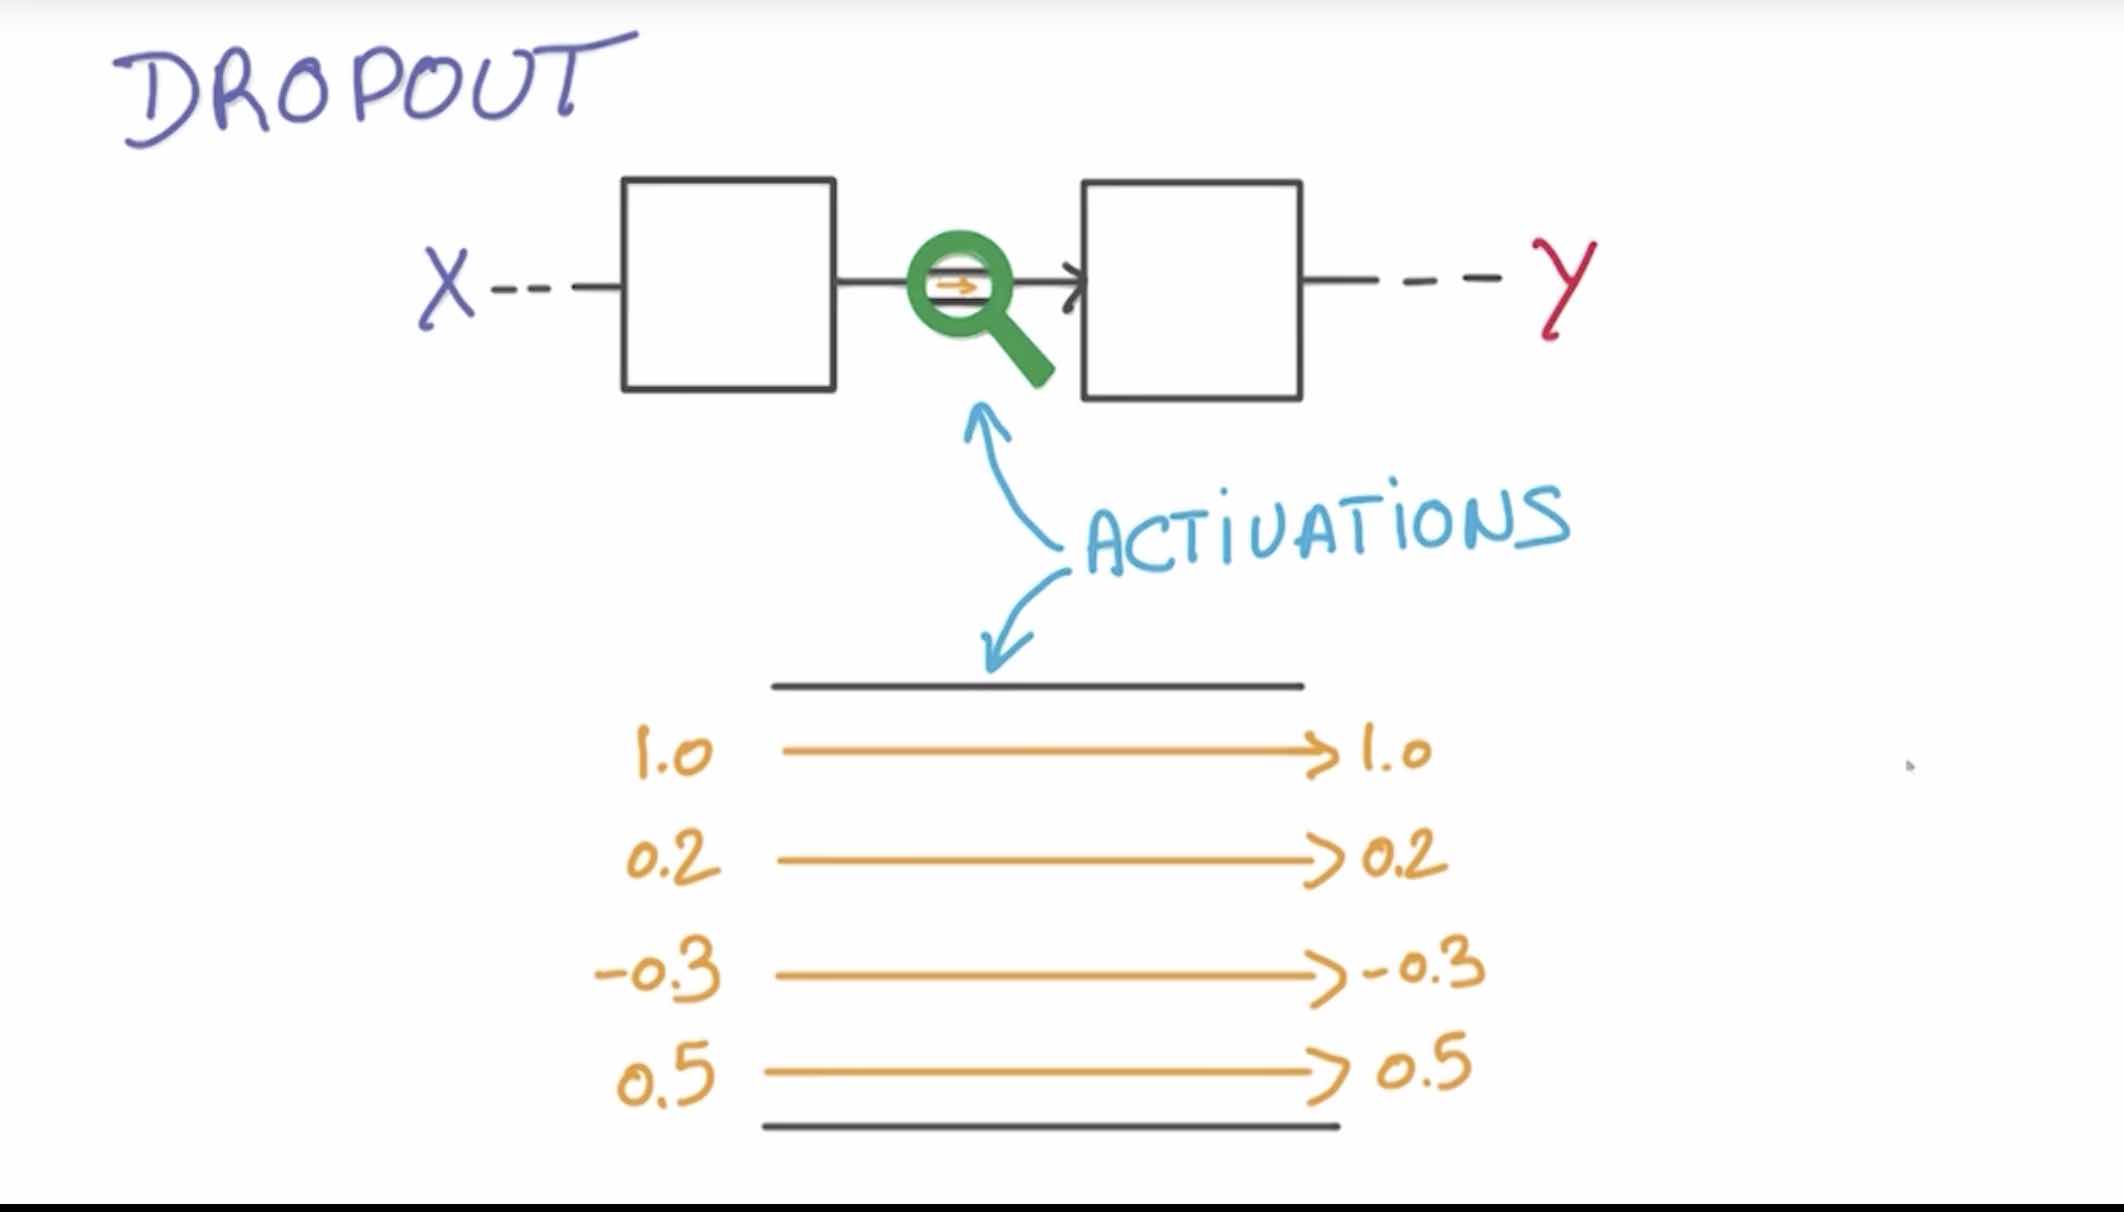 DROPOUT
X Y
ACTiVATiONS
1.0 1.0
0.2 0.2
-0.3 -0.3
0.5 0.5